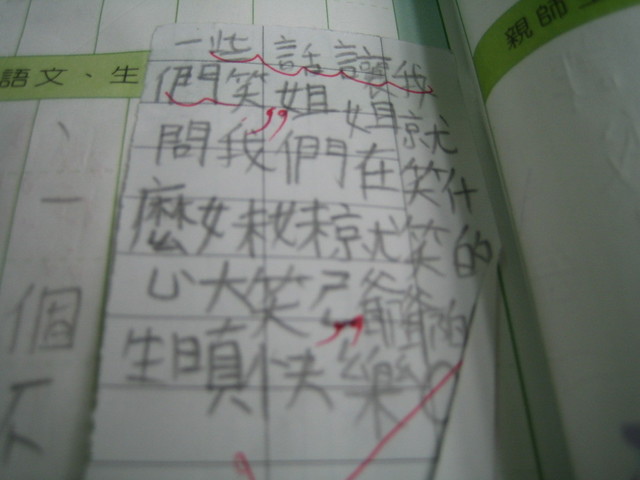 語文、生
親師
一些話讓我
們笑,姐姐就
問我們在笑什
麼妹妹就笑的
心大笑了,爸爸的
生日真快樂。
、
一
個
不